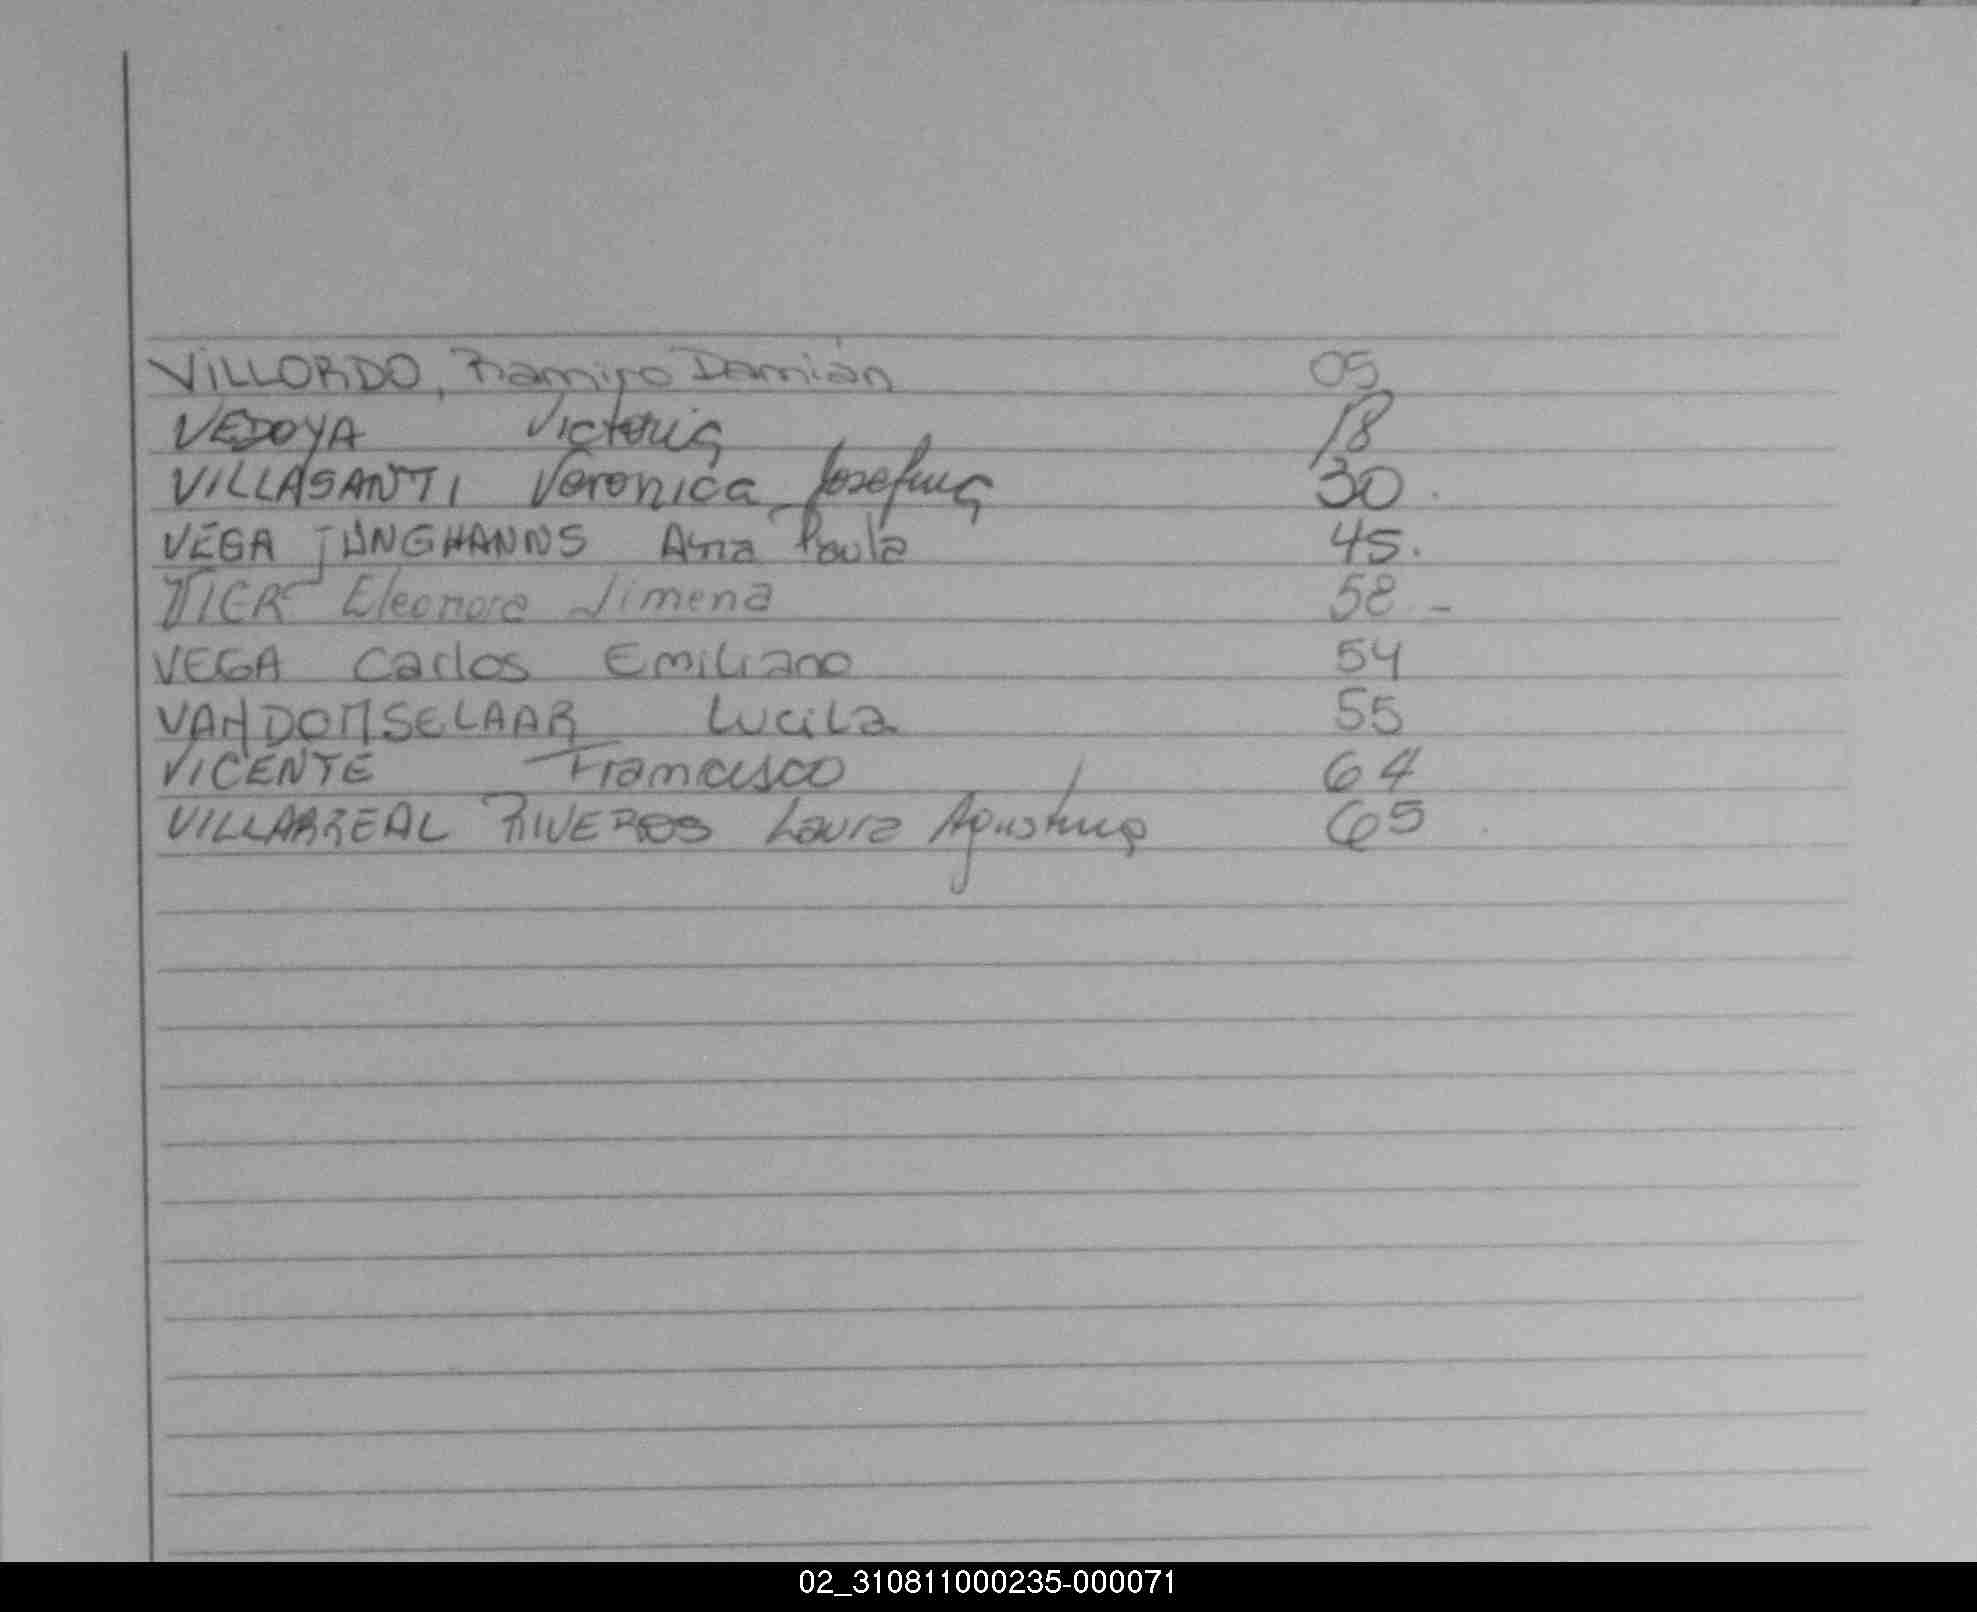 VILLORDO, Ramiro Damián 05
VEDOYA Victoria 18
VILLASANTI Veronica Josefina 30.
VEGA JUNGHANNS Ana Paula 45.
Eleonora Jimena 58 -
VEGA Carlos Emiliano 54
VANDOMSELAAR Lucila 55
VICENTE Francisco 64
VILLARREAL RIVEROS Laura Agustina 65
02_310811000235-000071